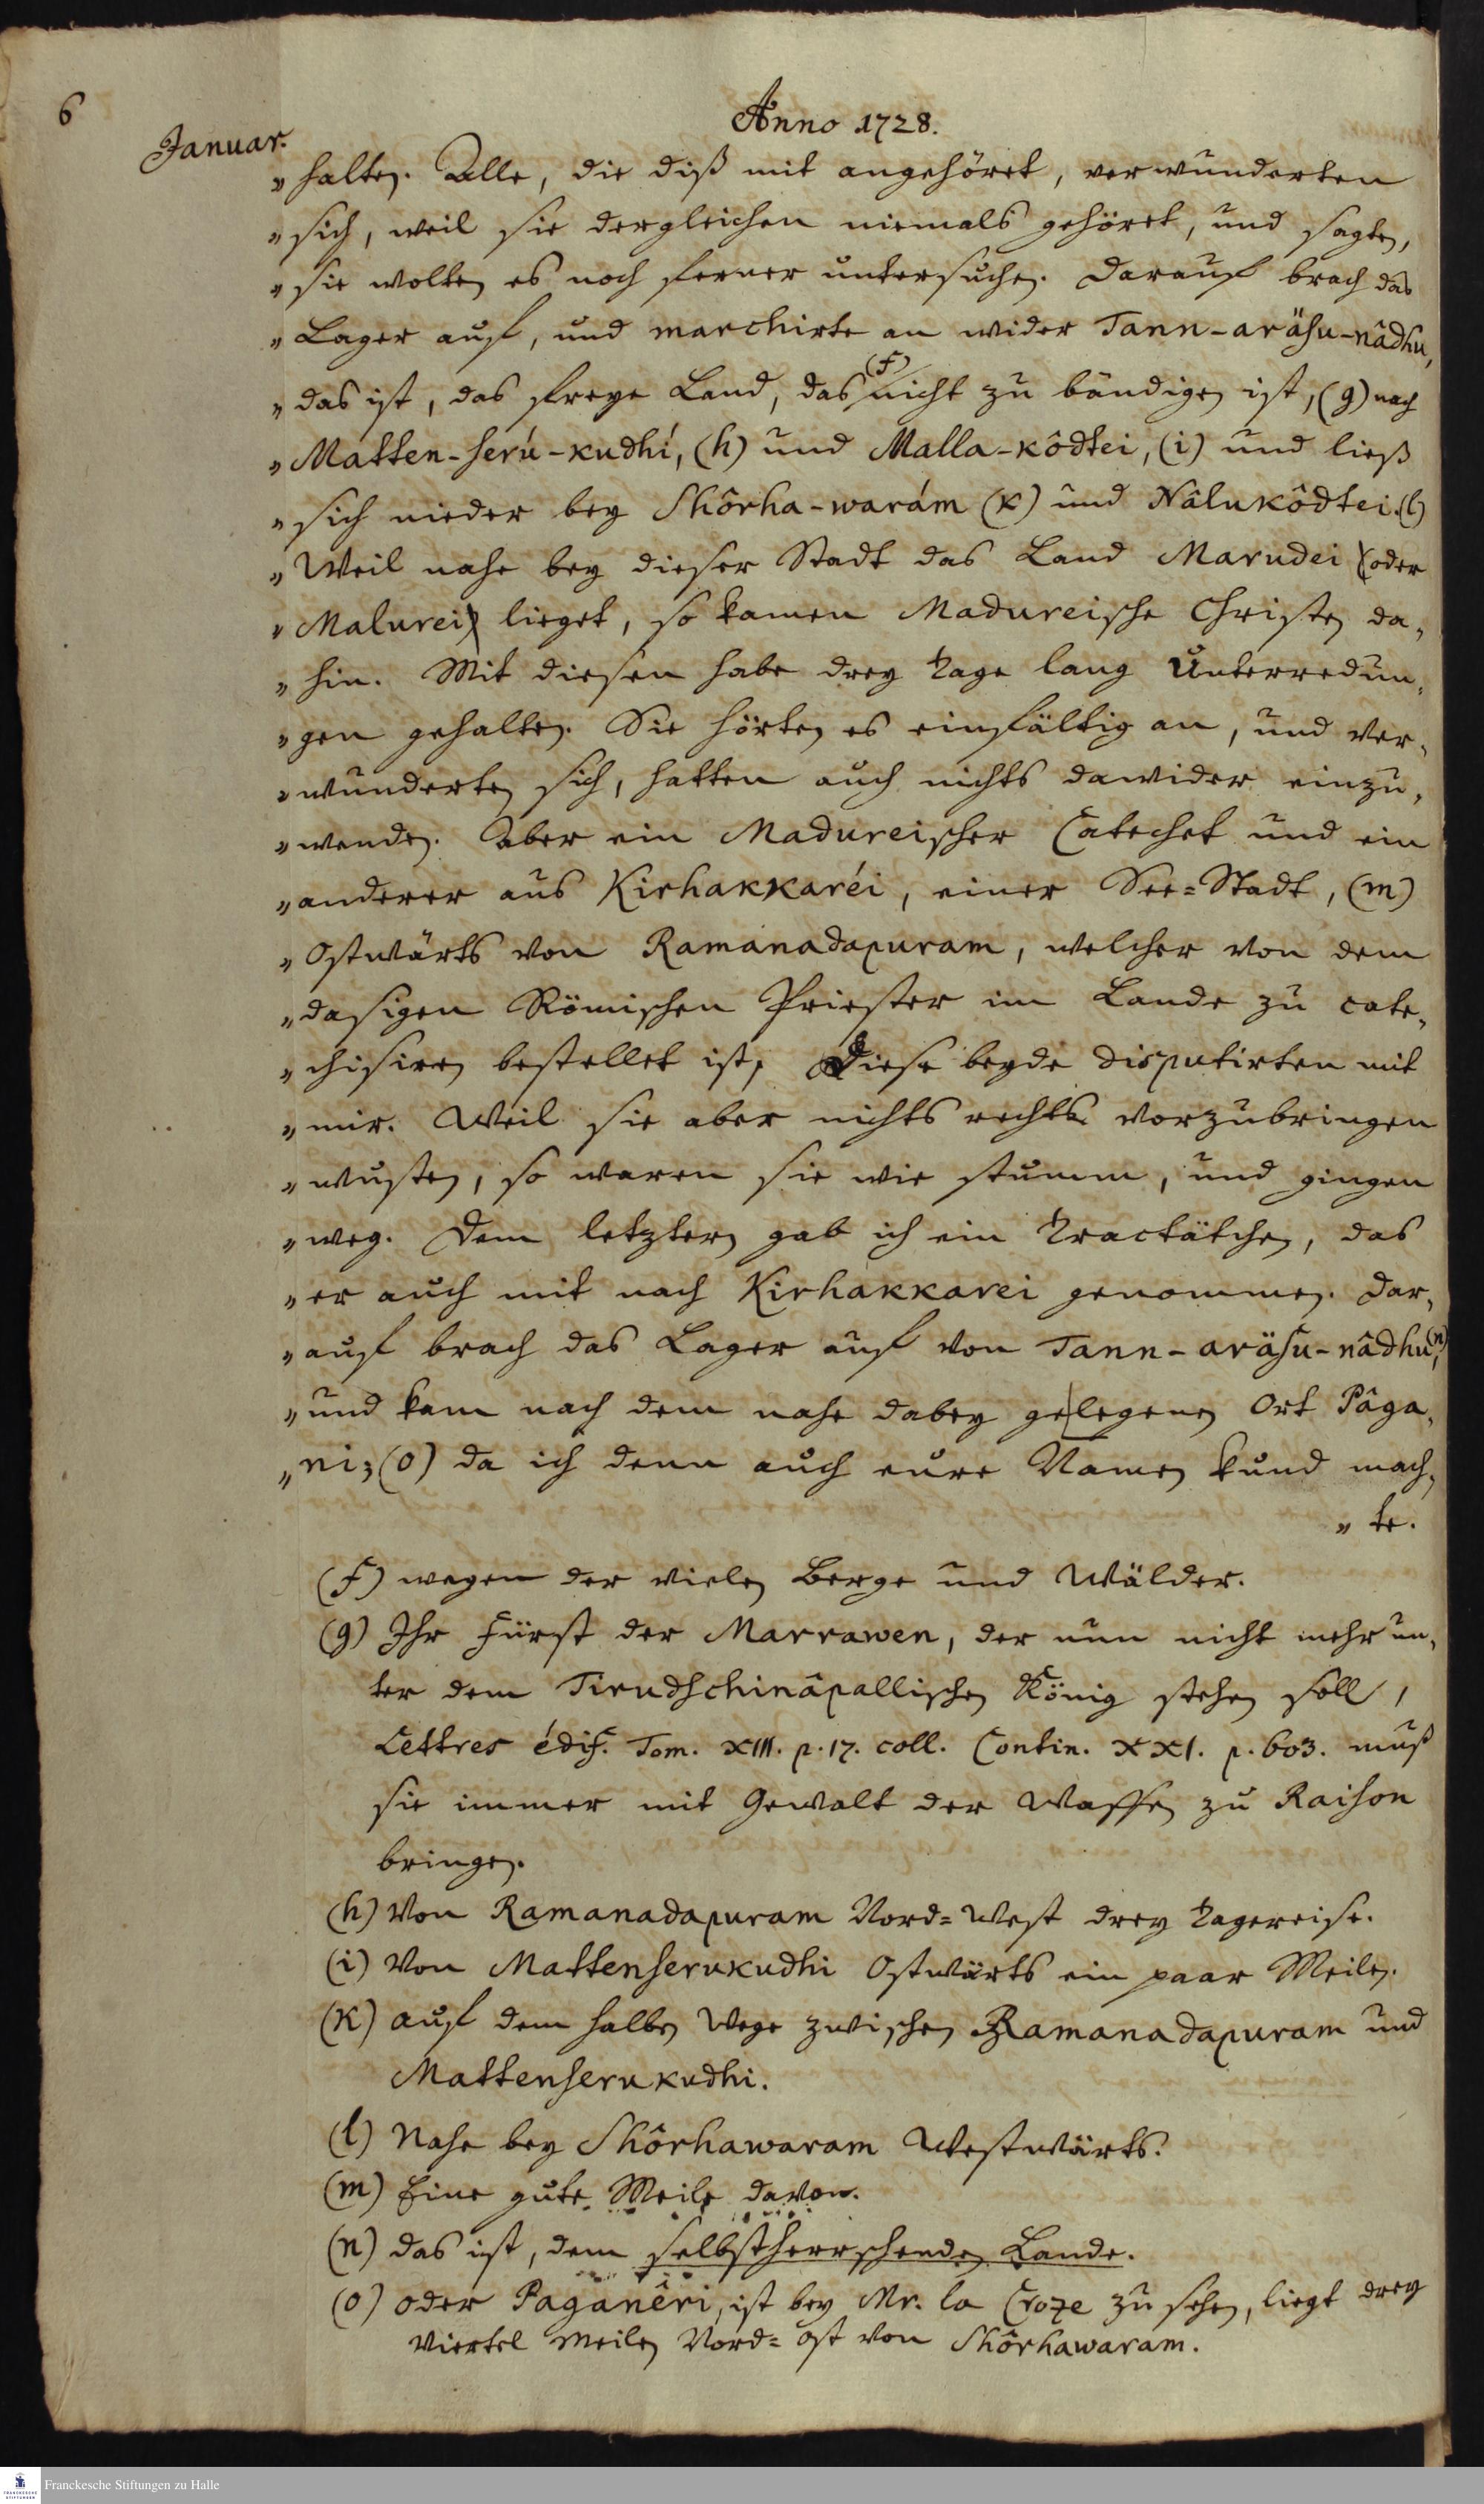 6
Anno 1728.
Januar.
„ halten. Alle, die diß mit angehöret, verwunderten
„ sich, weil sie dergleichen niemals gehöret, und sagten,
„ sie wolten es noch ferner untersuchen. Darauf brach das
„ Lager auf, und marchirte an wider Tann-aräsu-nâdhu,
„ das ist, das freye Land, das (f) nicht zu bändigen ist, (g) nach
„ Matten-serú-kudhí, (h) und Malla-kôdtei, (i) und ließ
„ sich nieder bey Shôrha-warám (k) und Nâlukôdtei. (l)
„ Weil nahe bey dieser Stadt das Land Marudei (oder
„ Malurei) lieget, so kamen Madureische Christen da„
„ hin. Mit diesen habe drey Tage lang Unterredun„
„ gen gehalten. Sie hörten es einfältig an, und ver„
„ wunderten sich, hatten auch nichts dawider einzu„
„ wenden. Aber ein Madureischer Catechet und ein
„ anderer aus Kirhakkaréi, einer See=Stadt, (m)
„ Ostwärts von Ramanadapuram, welcher von dem
„ dasigen Römischen Priester im Lande zu cate„
„ chisiren bestellet ist, Diese beyde disputirten mit
„ mir. Weil sie aber nichts rechts vorzubringen
„ wusten, so waren sie wie stumm, und gingen
„ weg. Dem letztern gab ich ein Tractätchen, das
„ er auch mit nach Kirhakkarei genommen. Dar„
„ auf brach das Lager auf von Tann-aräsu-nâdhu, (n)
„ und kam nach dem nahe dabey gelegenen Ort Pâga„
„ ni; (o) da ich denn auch eure Namen kund mach„
„ te.
(f) wegen der vielen Berge und Wälder.
(g) Ihr Fürst der Marrawen, der nun nicht mehr un„
ter dem Tirudschinâpallischen König stehen soll,
Lettres édif. Tom. XIII. p. 17. coll. Contin. XXI. p. 603. muß
sie immer mit Gewalt der Waffen zu Raison
bringen.
(h) Von Ramanadapuram Nord=West drey Tagereise.
(i) Von Mattenserukudhi Ostwärts ein paar Meilen.
(k) auf dem halben Wege zwischen Ramanadapuram und
Mattenserukudhi.
(l) Nahe bey Shôrhawaram Westwärts.
(m) Eine gute Meile davon.
(n) das ist, dem selbstherrschenden Lande.
(o) oder Paganêri, ist bey Mr. la Croze zu sehen, liegt drey
Viertel Meilen Nord=Ost von Shôrhawaram.
Franckesche Stiftungen zu Halle
FRANCKESCHE STIFTUNGEN